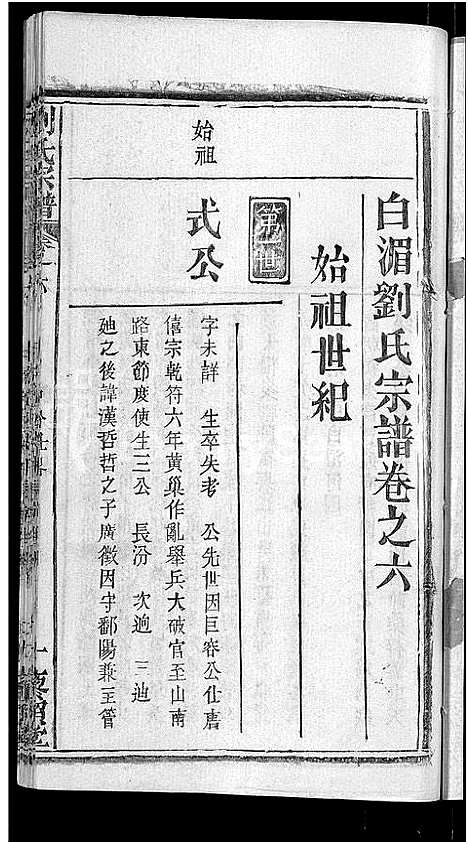 白湄劉氏宗譜卷之六
始祖世紀
第一世
始祖
式公
字未詳 生卒失考 公先世因巨容公仕唐
僖宗乾符六年黃巢作亂舉兵大破官至山南
路東節度使生三公 長汾 次逈 三迪
之後諱漢哲哲之子廣徵因守鄱陽兼主管
劉氏宗譜
卷之六